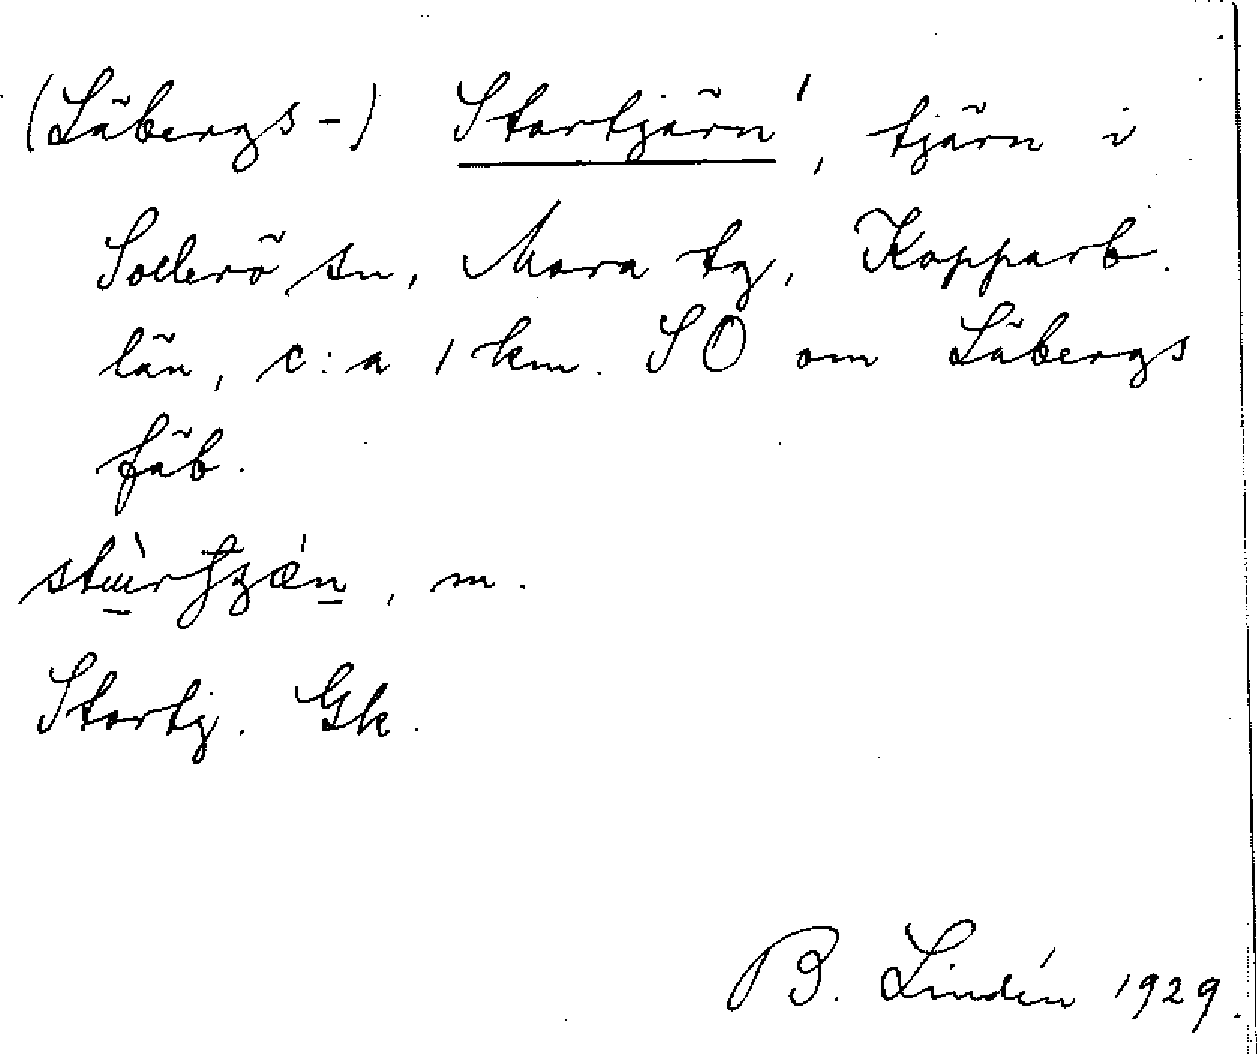 (Läbergs-) Stortjärn', tjärn i
Sollerö sn, Mora tg, Kopparb.
län, c:a 1 km. SO om Läbergs
fäb.
, m.
Stortj. Gk.
B. Lindén 1929.